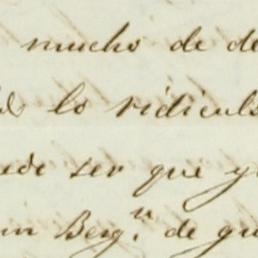 mucho de de
lo ridiculo
ede ser que y
un Berg.n de gu